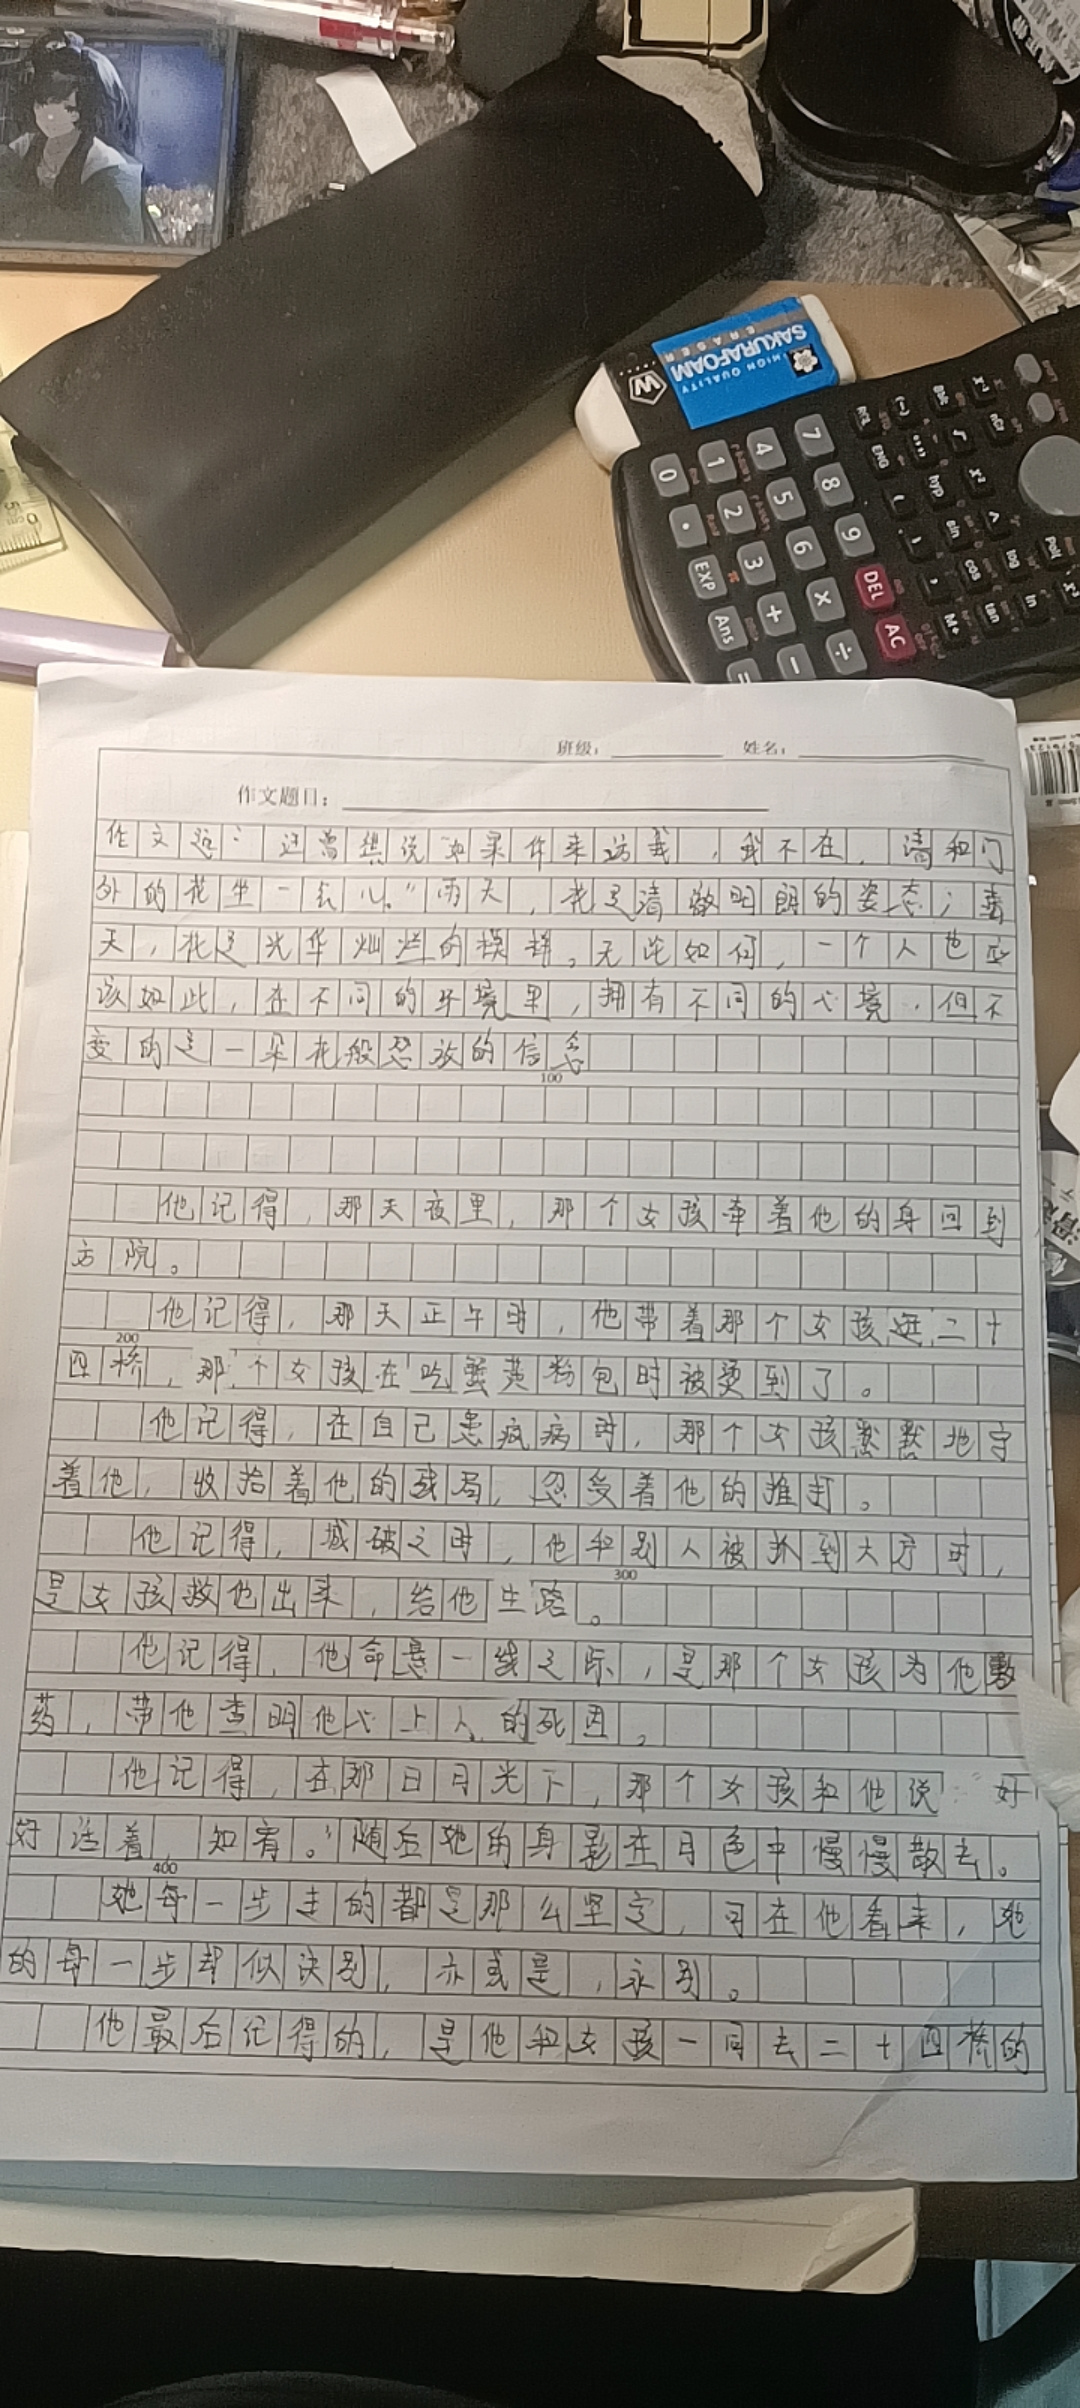 SAKURAFOAM
ERASER
HIGH QUALITY
W
0 1 4 7
. 2 5 8
EXP 3 6 9
Ans + × DEL
= − ÷ AC
ENG
hyp
sin
cos
tan
log
ln
M+
Pol(
班级：
姓名：
作文题目：
作文题：汪曾祺说"如果你来访我，我不在，请和门
外的花坐一会儿。"雨天，花是清
明朗的姿态；
天，花是光华灿烂的模样。无论如何，一个人也应
该如此，在不同的环境里，拥有不同的心境，但不
变的是一朵花般忍放的信念
100
他记得，那天夜里，那个女孩牵着他的身回到
方院。
他记得，那天正午时，他带着那个女孩逛二十
200
四桥，那个女孩在吃蟹黄粉包时被烫到了。
他记得，在自己患疯病时，那个女孩默默地守
着他，收拾着他的残局，忍受着他的推打。
他记得，城破之时，他和别人被抓到大厅时，
300
是女孩救他出来，给他生路。
他记得，他命悬一线之际，是那个女孩为他敷
药，带他查明他心上人的死因。
他记得，在那日月光下，那个女孩和他说："好
好活着，知宥。"随后她的身影在月色中慢慢散去。
400
她每一步走的都是那么坚定，可在他看来，她
的每一步却似诀别，亦或是，永别。
他最后记得的，是他和女孩一同去二十四桥的